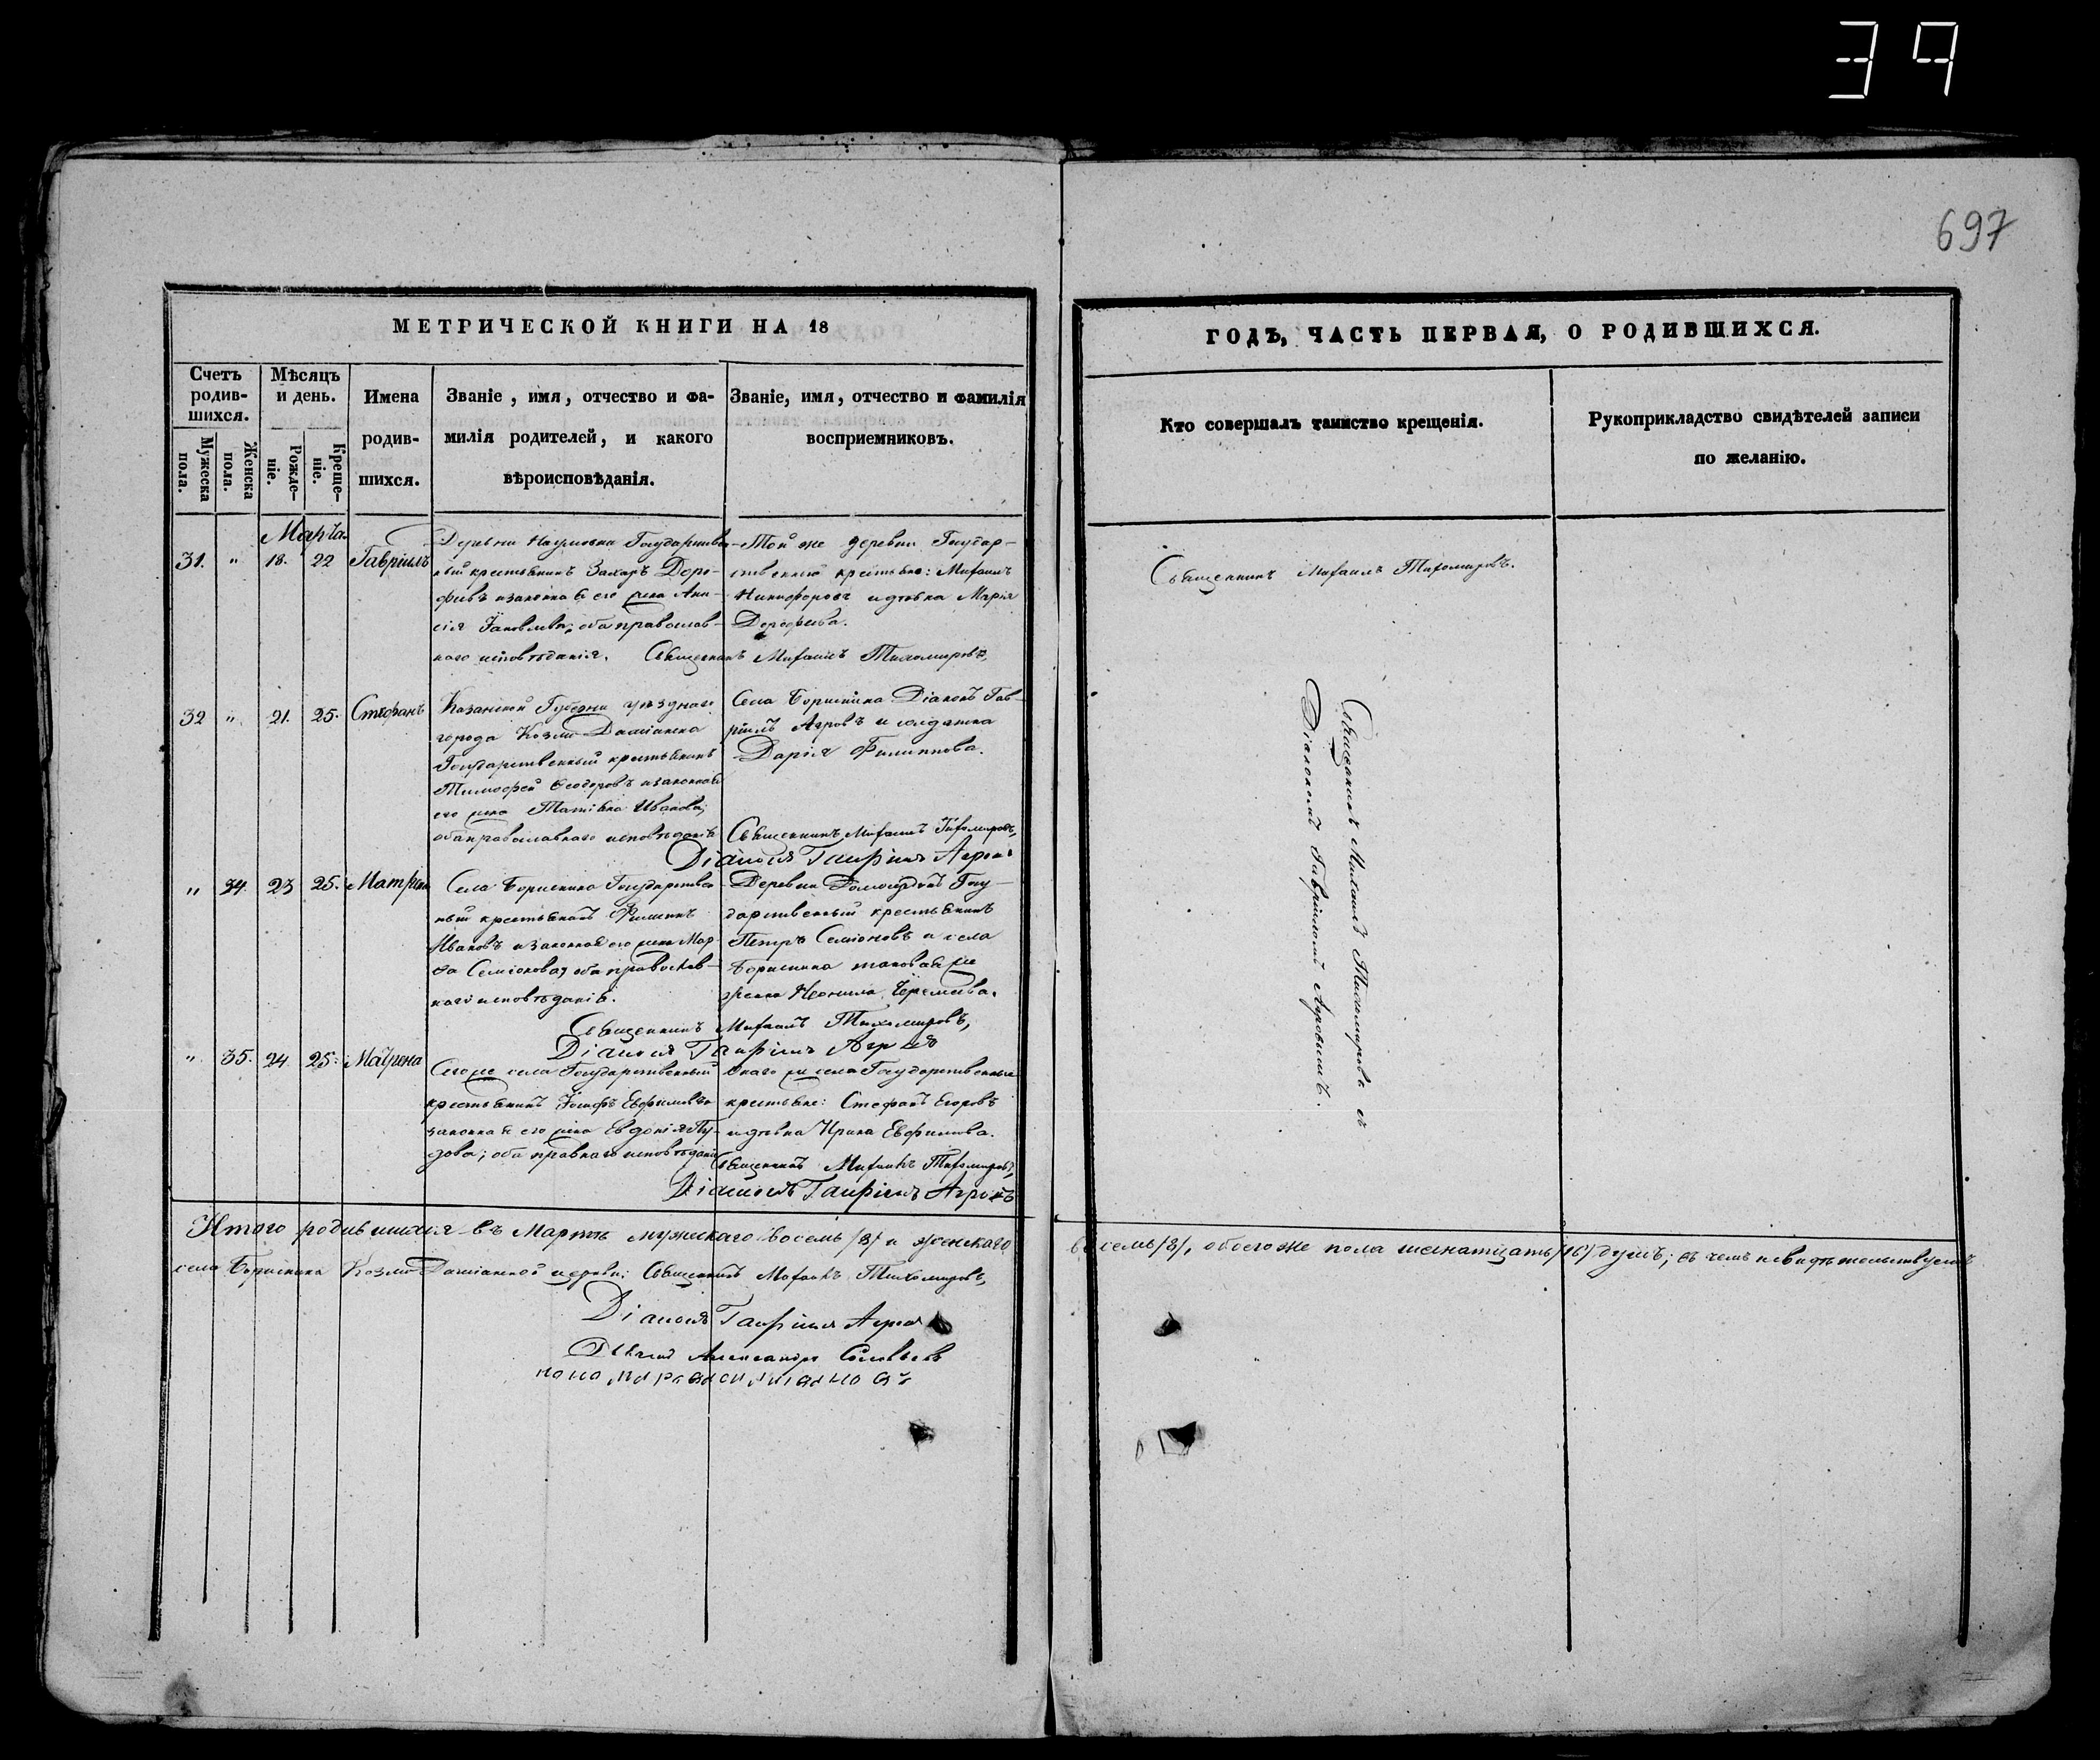 39
697
МЕТРИЧЕСКОЙ КНИГИ НА 18
ГОДЪ, ЧАСТЬ ПЕРВАЯ, О РОДИВШИХСЯ.
Счетъ родив- шихся.
Мужеска пола.
Женска пола.
Мѣсяцъ и день.
Рожде- ніе.
Креще- ніе.
Имена родив- шихся.
Званіе, имя, отчество и фа-
милія родителей, и какого
вѣроисповѣданія.
Званіе, имя, отчество и фамилія
восприемниковъ.
Кто совершалъ таинство крещенія.
Рукоприкладство свидѣтелей записи
по желанію.
Марта
31. " 18. 22 Гавріилъ
Деревни Наумовки Государствен-
ный крестьянинъ Захаръ Доро-
фѣевъ и законная его жена Ани-
сія Іаковлева; оба православ-
наго исповѣданія.
Той же деревни Государ-
ственный крестьяне: Михаилъ
Никифоровъ и дѣвка Марія
Дорофеева.
Священникъ Михаилъ Тихомировъ,
Священникъ Михаилъ Тихомировъ.
32 " 21. 25. Стефанъ
Казанской Губерни уезднаго
города Козмо Даміанска
Государственный крестьянинъ
Тимофей Феодоровъ и законная
его жена Татіяна Иванова;
оба православнаго исповѣданія
Села Борискина Діаконъ Гав-
ріилъ Агровъ и солдатка
Дарія Филиппова.
Священникъ Михаилъ Тихомировъ,
Діаконъ Гавріилъ Агровъ
" 34. 23 25. Матрона
Села Борискина Государствен-
ный крестьянинъ Филиппъ
Ивановъ и законная его жена Мар-
Семіонова, оба православ-
наго исповѣданія.
Деревни Гоу-
дарственный крестьянинъ
Петръ Семіоновъ и села
Борискина таковая же
Неонила Еремеева.
Священникъ Михаилъ Тихомировъ,
Діаконъ Гавріилъ Агровъ
" 35. 24 25. Маѵрена
Сего же села Государственный
крестьянинъ Іосифъ Евфимовъ и
законная его жена Евдокія
оба правнаго исповѣданія
Онаго же села Государственные
крестьяне: Стефанъ Егоровъ
и дѣвка Ирина Евфимова.
Священникъ Михаилъ Тихомировъ,
Діаконъ Гавріилъ Агровъ
Священникъ Михаилъ Тихомировъ съ
Діакономъ Гавріиломъ Агровымъ.
Итого родившихся въ Мартѣ мужескаго восемь /8/ и женскаго
восемь /8/, обоего же пола шеснатцать /16/ душъ; въ чемъ и свидѣтельствуемъ
села Борискина Козмо Даміанской церкви: Священникъ Михаилъ Тихомировъ,
Діаконъ Гавріилъ Агровъ
Дьячекъ Александръ Соловьевъ